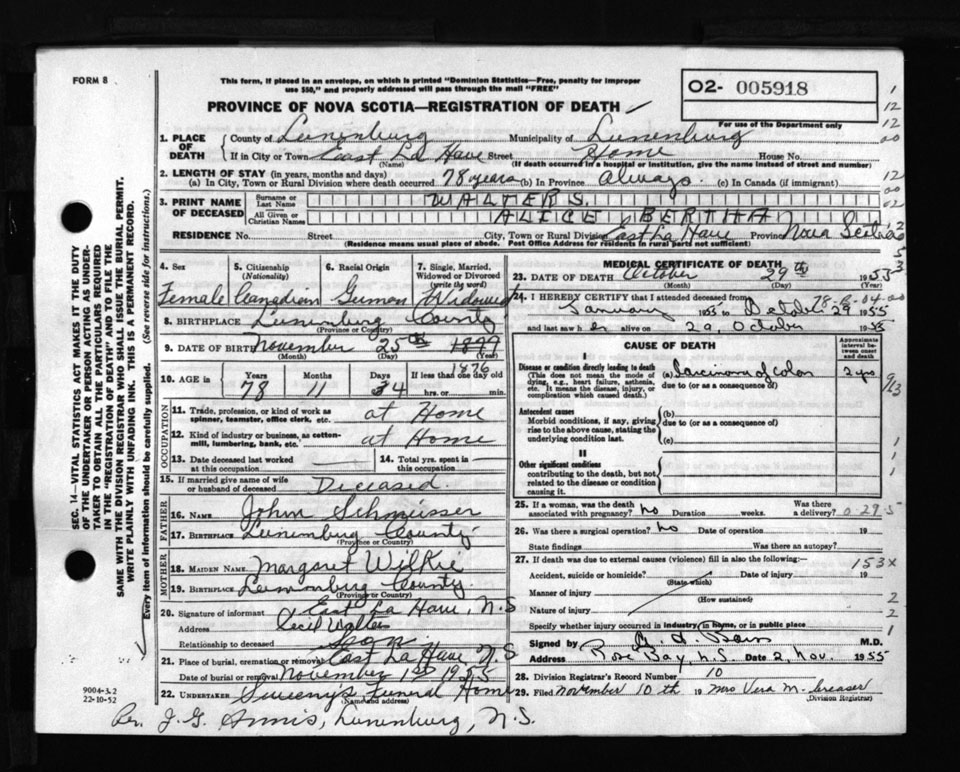 FORM 8
This form, if placed in an envelope, on which is printed "Dominion Statistics—Free, penalty for improper
use $50," and properly addressed will pass through the mail "FREE"
O2- 005918
For use of the Department only
PROVINCE OF NOVA SCOTIA—REGISTRATION OF DEATH
1. PLACE OF DEATH County of Lunenburg Municipality of Lunenburg
If in City or Town East La Have Street Home House No.
(Name) (If death occurred in a hospital or institution, give the name instead of street and number)
2. LENGTH OF STAY (in years, months and days)
(a) In City, Town or Rural Division where death occurred 78 years (b) In Province always. (c) In Canada (if immigrant)
3. PRINT NAME OF DECEASED Surname or Last Name WALTERS.
All Given or Christian Names ALICE BERTHA
RESIDENCE No. Street City, Town or Rural Division East La Have Province Nova Scotia
(Residence means usual place of abode. Post Office Address for residents in rural parts not sufficient)
4. Sex 5. Citizenship (Nationality) 6. Racial Origin 7. Single, Married, Widowed or Divorced (write the word)
Female Canadian German Widowed
8. BIRTHPLACE Lunenburg County
(Province or Country)
9. DATE OF BIRTH November 25th 1877
(Month) (Day) (Year)
1876
10. AGE in Years Months Days If less than one day old
78 11 34 hrs. or min.
OCCUPATION
11. Trade, profession, or kind of work as spinner, teamster, office clerk, etc. at Home
12. Kind of industry or business, as cotton-mill, lumbering, bank, etc. at Home
13. Date deceased last worked at this occupation 14. Total yrs. spent in this occupation
15. If married give name of wife or husband of deceased Deceased.
FATHER
16. NAME John Schmeisser
17. BIRTHPLACE Lunenburg County
(Province or Country)
MOTHER
18. MAIDEN NAME Margaret Wilkie
19. BIRTHPLACE Lunenburg County.
(Province or Country)
20. Signature of informant East La Have, N.S
Address Cecil Walters
Relationship to deceased Son.
21. Place of burial, cremation or removal East La Have N.S
Date of burial or removal November 1st 1955
22. UNDERTAKER Sweeny's Funeral Home
(Name and address)
Per. J. G. Annis, Lunenburg, N.S.
9004-3.2
22-10-52
SEC. 14—VITAL STATISTICS ACT MAKES IT THE DUTY
OF THE UNDERTAKER OR PERSON ACTING AS UNDER-
TAKER TO OBTAIN ALL THE PARTICULARS REQUIRED
IN THE "REGISTRATION OF DEATH" AND TO FILE THE
SAME WITH THE DIVISION REGISTRAR WHO SHALL ISSUE THE BURIAL PERMIT.
WRITE PLAINLY WITH UNFADING INK. THIS IS A PERMANENT RECORD.
Every item of information should be carefully supplied. (See reverse side for instructions.)
MEDICAL CERTIFICATE OF DEATH
23. DATE OF DEATH October 29th 1955
(Month) (Day)
24. I HEREBY CERTIFY that I attended deceased from
January 1955 to October 29 1955
and last saw her alive on 29, October 1955
CAUSE OF DEATH
Approximate interval between onset and death
I
Disease or condition directly leading to death
(This does not mean the mode of dying, e.g., heart failure, asthenia, etc. It means the disease, injury, or complication which caused death.)
(a) Carcinoma of colon 2 yrs
due to (or as a consequence of)
Antecedent causes
Morbid conditions, if any, giving rise to the above cause, stating the underlying condition last.
(b)
due to (or as a consequence of)
(c)
II
Other significant conditions
contributing to the death, but not related to the disease or condition causing it.
25. If a woman, was the death associated with pregnancy? no Duration weeks. Was there a delivery?
26. Was there a surgical operation? no Date of operation 19
State findings Was there an autopsy?
27. If death was due to external causes (violence) fill in also the following:
Accident, suicide or homicide? Date of injury 19
(State which)
Manner of injury
(How sustained)
Nature of injury
Specify whether injury occurred in industry, in home, or in public place
Signed by M.D.
Address Rose Bay, N.S. Date 2 Nov. 1955
28. Division Registrar's Record Number 10
29. Filed November 10th 19 Mrs Vera M. Creaser
(Division Registrar)
153X